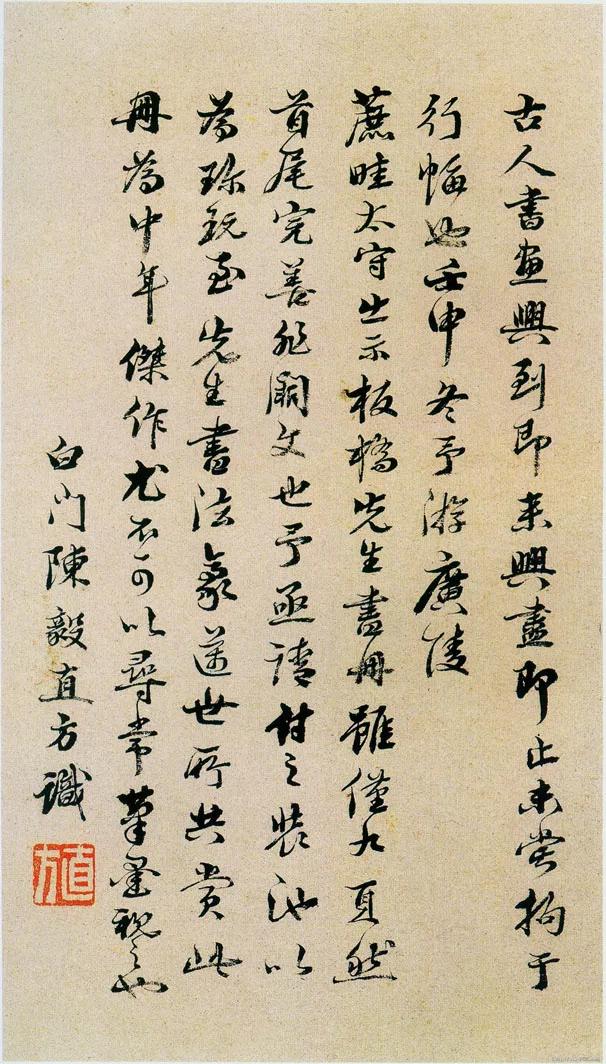 古人書畫興到即來興盡即止未嘗拘于
行幅也壬申冬予游廣陵
蔗畦太守出示板橋先生書冊雖僅九頁然
首尾完善非闕文也予亟請付之裝池以
為珍玩至先生書法豪邁世所共賞此
冊為中年傑作尤不可以尋常筆墨視之也
白門陳毅直方識
直方